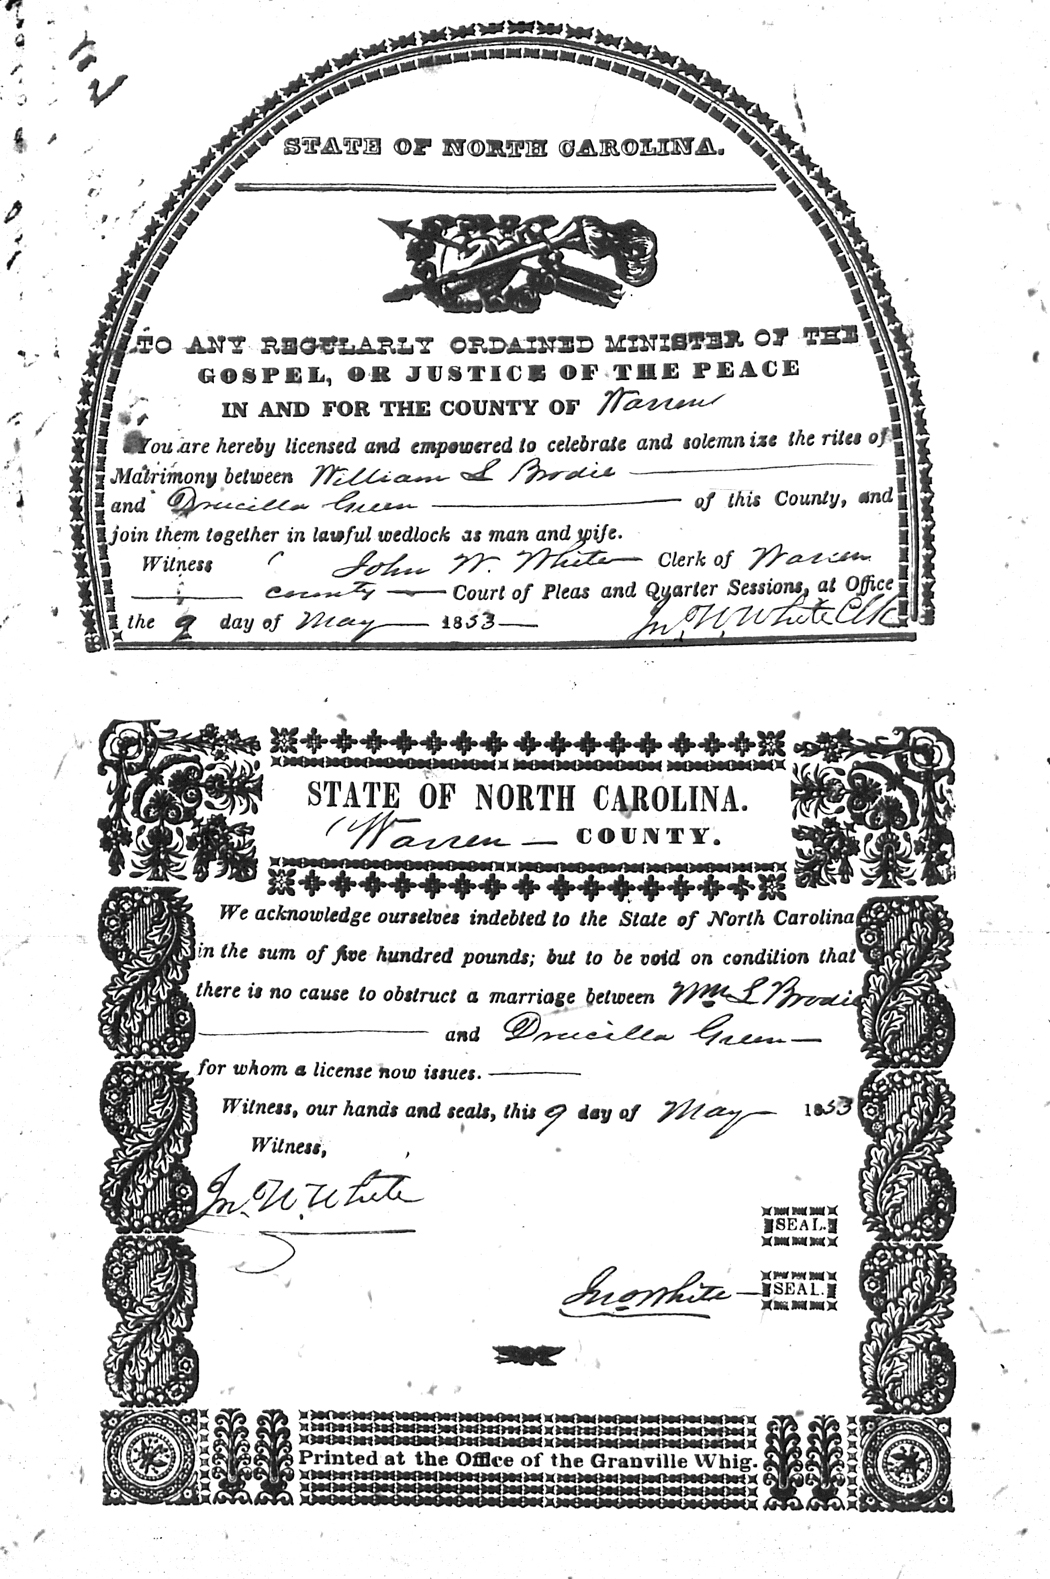 STATE OF NORTH CAROLINA.
TO ANY REGULARLY ORDAINED MINISTER OF THE
GOSPEL, OR JUSTICE OF THE PEACE
IN AND FOR THE COUNTY OF Warren
You are hereby licensed and empowered to celebrate and solemnize the rites of
Matrimony between William S Brodie
and Drucilla Green of this County, and
join them together in lawful wedlock as man and wife.
Witness John W. White Clerk of Warren
county Court of Pleas and Quarter Sessions, at Office
the 9 day of May 1853 Jn. W. White Clk
STATE OF NORTH CAROLINA.
Warren COUNTY.
We acknowledge ourselves indebted to the State of North Carolina
in the sum of five hundred pounds; but to be void on condition that
there is no cause to obstruct a marriage between Wm S Brodie
and Drucilla Green
for whom a license now issues.
Witness, our hands and seals, this 9 day of May 1853
Witness,
Jn. W. White
SEAL.
Jno White SEAL.
Printed at the Office of the Granville Whig.